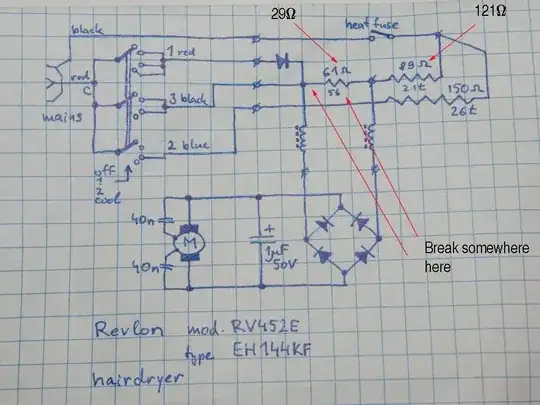 29Ω
121Ω
heat fuse
black
1 red
61Ω
56
89Ω
21t
150Ω
26t
red
C
mains
3 black
2 blue
off
1
2
cool
40n
M
40n
+
1μF
50V
Break somewhere
here
Revlon mod. RV452E
type EH144KF
hairdryer